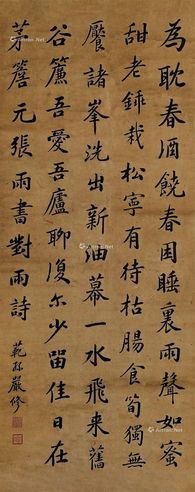 為耽春酒饒春困睡裏雨聲如蜜
甜老鍤栽松寧有待枯腸食筍獨無
饜諸峯洗出新油幕一水飛来舊
谷簾吾愛吾廬聊復尓少留佳日在
茅簷元張雨書對雨詩
範孫嚴修